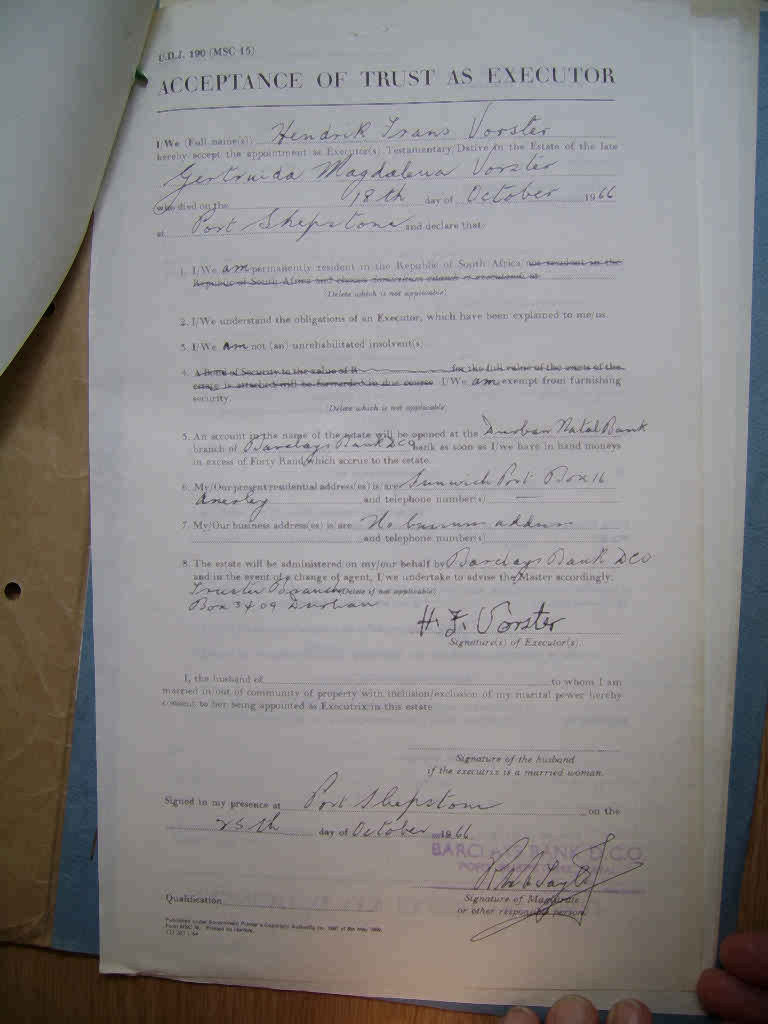 U.D.J. 190 (MSC 15)
ACCEPTANCE OF TRUST AS EXECUTOR
I/We (Full name(s)) Hendrik Frans Vorster
hereby accept the appointment as Executor(s) Testamentary/Dative in the Estate of the late
Gertruida Magdalena Vorster
who died on the 18th day of October 1966
at Port Shepstone and declare that:
1. I/We am permanently resident in the Republic of South Africa not resident in the
Republic of South Africa and
(Delete which is not applicable)
2. I/We understand the obligations of an Executor, which have been explained to me/us.
3. I/We am not (an) unrehabilitated insolvent(s)
4. A Bond of Security to the value of R for the full value of the assets of the
estate is attached/will be forwarded in due course I/We am exempt from furnishing
security.
(Delete which is not applicable)
5. An account in the name of the estate will be opened at the Durban Natal Bank
branch of Barclays Bank DCO bank as soon as I/we have in hand moneys
in excess of Forty Rand which accrue to the estate.
6. My/Our present residential address(es) is/are Sunwich Port Box 16
Anerley and telephone number(s)
7. My/Our business address(es) is/are No business address
and telephone number(s)
8. The estate will be administered on my/our behalf by Barclays Bank DCO
and in the event of a change of agent, I/we undertake to advise the Master accordingly.
Trustee Branch (Delete if not applicable)
Box 3409 Durban
H. F. Vorster
Signature(s) of Executor(s).
I, the husband of to whom I am
married in/out of community of property with inclusion/exclusion of my marital power hereby
consent to her being appointed as Executrix in this estate
Signature of the husband
if the executrix is a married woman.
Signed in my presence at Port Shepstone on the
25th day of October 1966
BARCLAYS BANK D.C.O.
Signature of Magistrate
or other responsible person.
Qualification